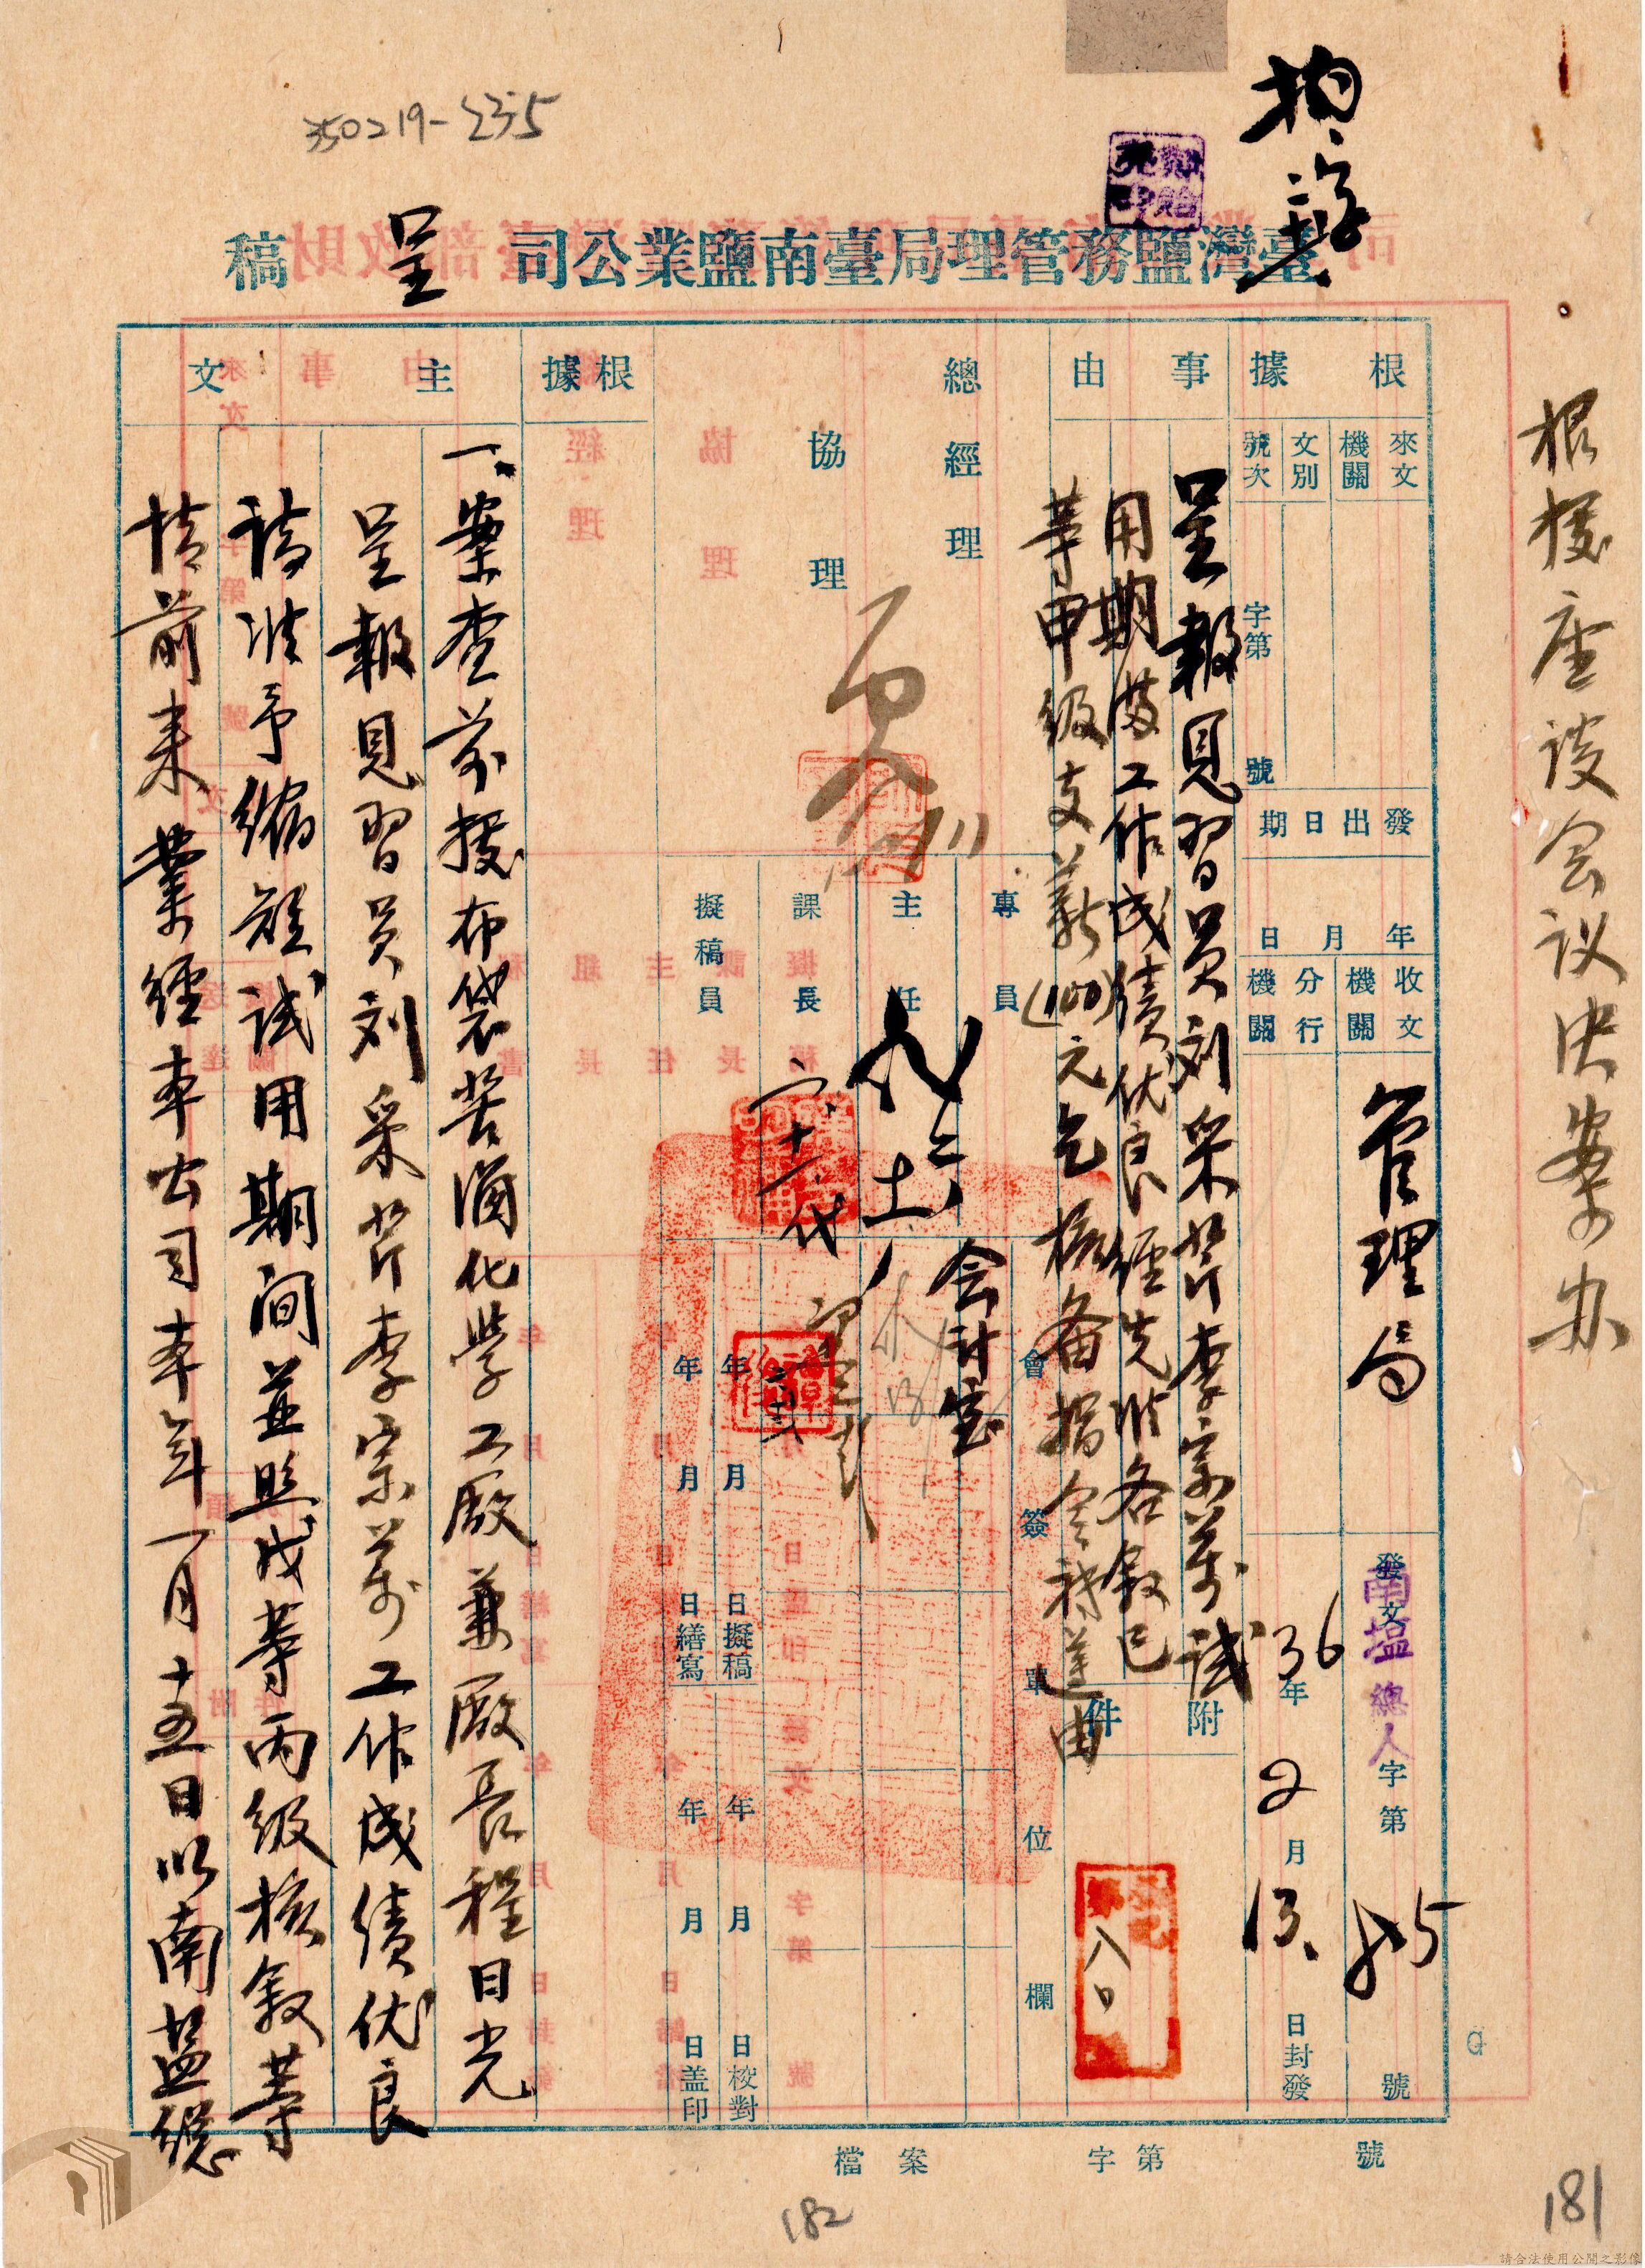 350219-235
臺灣鹽務管理局臺南鹽業公司
呈
稿
根據座談会议决案办
根據
來文機關
文別
號次
字第
號
事由
呈報見習員刘采芹李宗萬試
用期滿工作成績优良經先准各敘已
等甲級支薪(100)元乞核备指令祗遵由
發出日期
年月日
收文機關
管理局
分行機關
發文
南塩總人
字第
號
36年
2月
13日封發
附件
總經理
協理
專員
主任
課長
擬稿員
会計室
會簽單位欄
年月日擬稿
年月日繕寫
年月日校對
年月日盖印
根據
主文
一、案查前據布袋苦滷化學工廠兼廠長程日光
呈報見習員刘采芹李宗萬工作成績优良
請准予縮短試用期間並照戊等丙級核敘等
情前来業經本公司本年一月十五日以南盐總
檔案
字第
號
182
181
請合法使用公開之影像